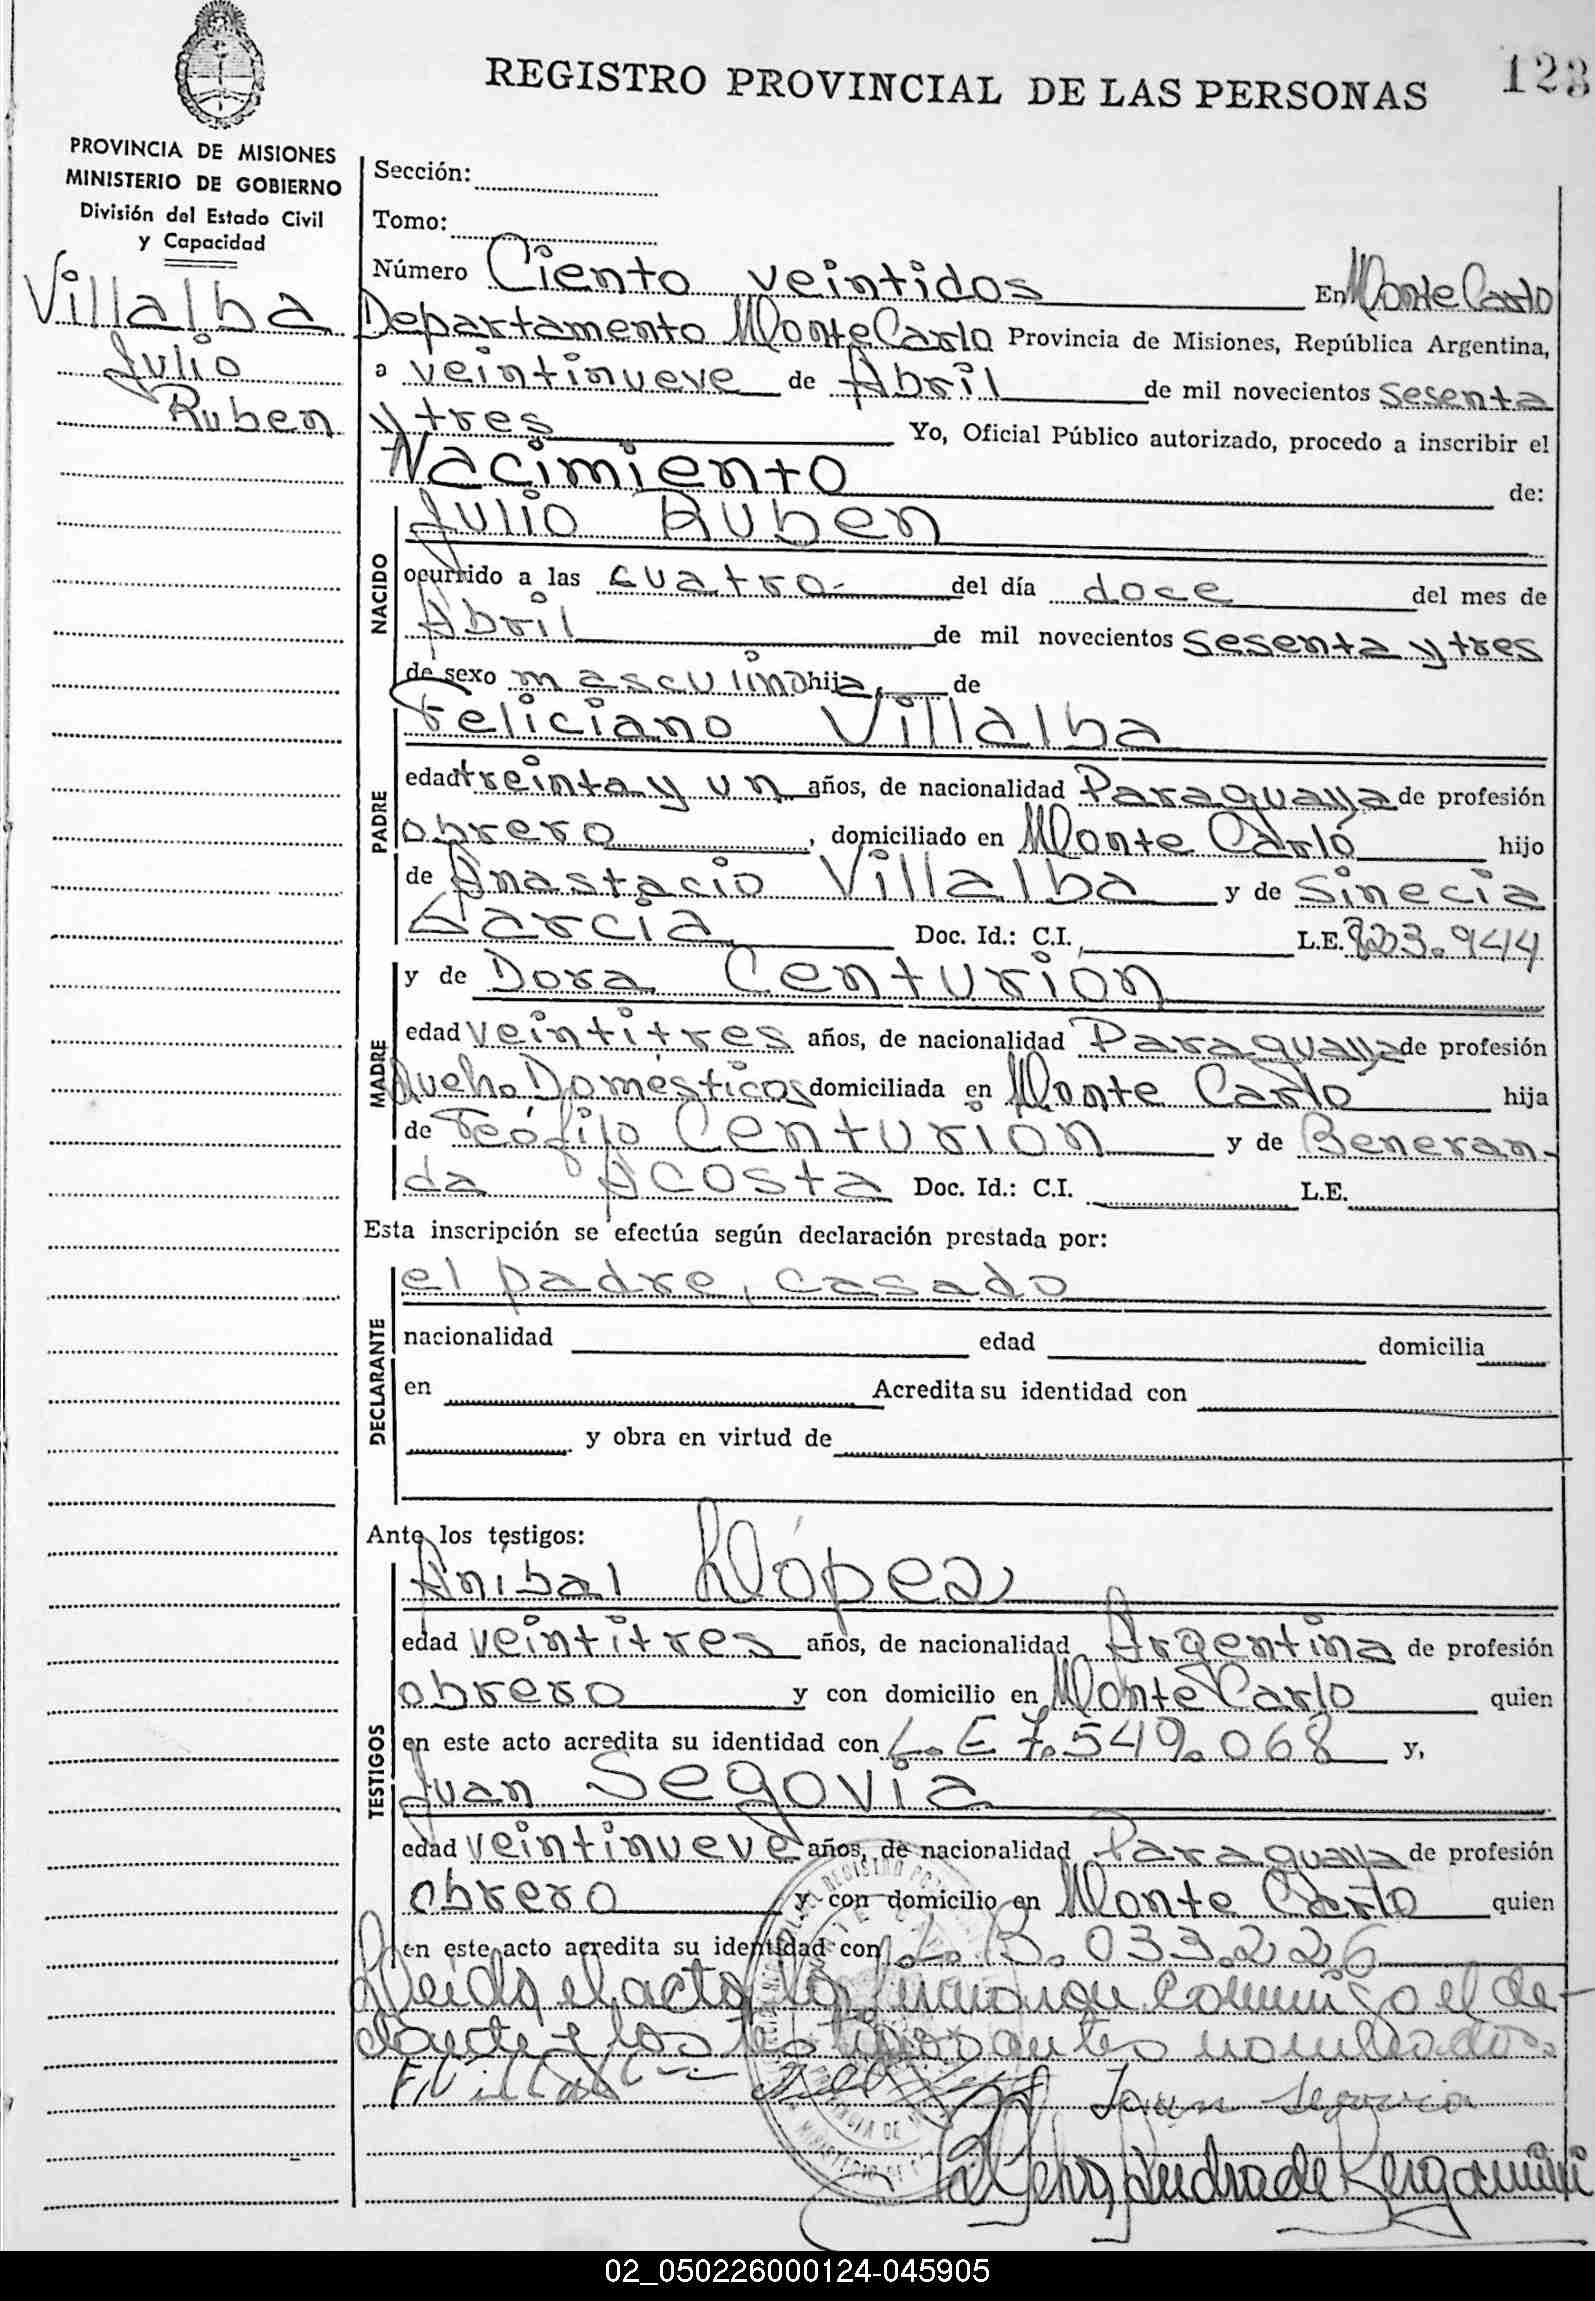 REGISTRO PROVINCIAL DE LAS PERSONAS
123
PROVINCIA DE MISIONES
MINISTERIO DE GOBIERNO
División del Estado Civil
y Capacidad
Villalba
Julio
Ruben
Sección:
Tomo:
Número Ciento veintidos En Monte Carlo
Departamento Monte Carlo Provincia de Misiones, República Argentina,
a veintinueve de Abril de mil novecientos sesenta
y tres Yo, Oficial Público autorizado, procedo a inscribir el
Nacimiento de:
NACIDO
Julio Ruben
ocurrido a las cuatro del día doce del mes de
Abril de mil novecientos sesenta y tres
de sexo masculino hija de
PADRE
Feliciano Villalba
edad treinta y un años, de nacionalidad Paraguaya de profesión
obrero, domiciliado en Monte Carlo hijo
de Anastacio Villalba y de Sinecia
Garcia Doc. Id.: C.I. L.E. 823.944
MADRE
y de Dora Centurion
edad veintitres años, de nacionalidad Paraguaya de profesión
Queh. Domésticos domiciliada en Monte Carlo hija
de Teófilo Centurion y de Beneran-
da Acosta Doc. Id.: C.I. L.E.
Esta inscripción se efectúa según declaración prestada por:
DECLARANTE
el padre, casado
nacionalidad edad domicilia
en Acredita su identidad con
y obra en virtud de
Ante los testigos:
TESTIGOS
Anibal López
edad veintitres años, de nacionalidad Argentina de profesión
obrero y con domicilio en Monte Carlo quien
en este acto acredita su identidad con L. E 7.549.068 y,
Juan Segovia
edad veintinueve años, de nacionalidad Paraguaya de profesión
obrero y con domicilio en Monte Carlo quien
en este acto acredita su identidad con L. B. 033.226
Leida el acta la firmaron conmigo el de-
clarante y los testigos antes nombrados.
F. Villalba Juan Segovia
de Bergamini
02_050226000124-045905